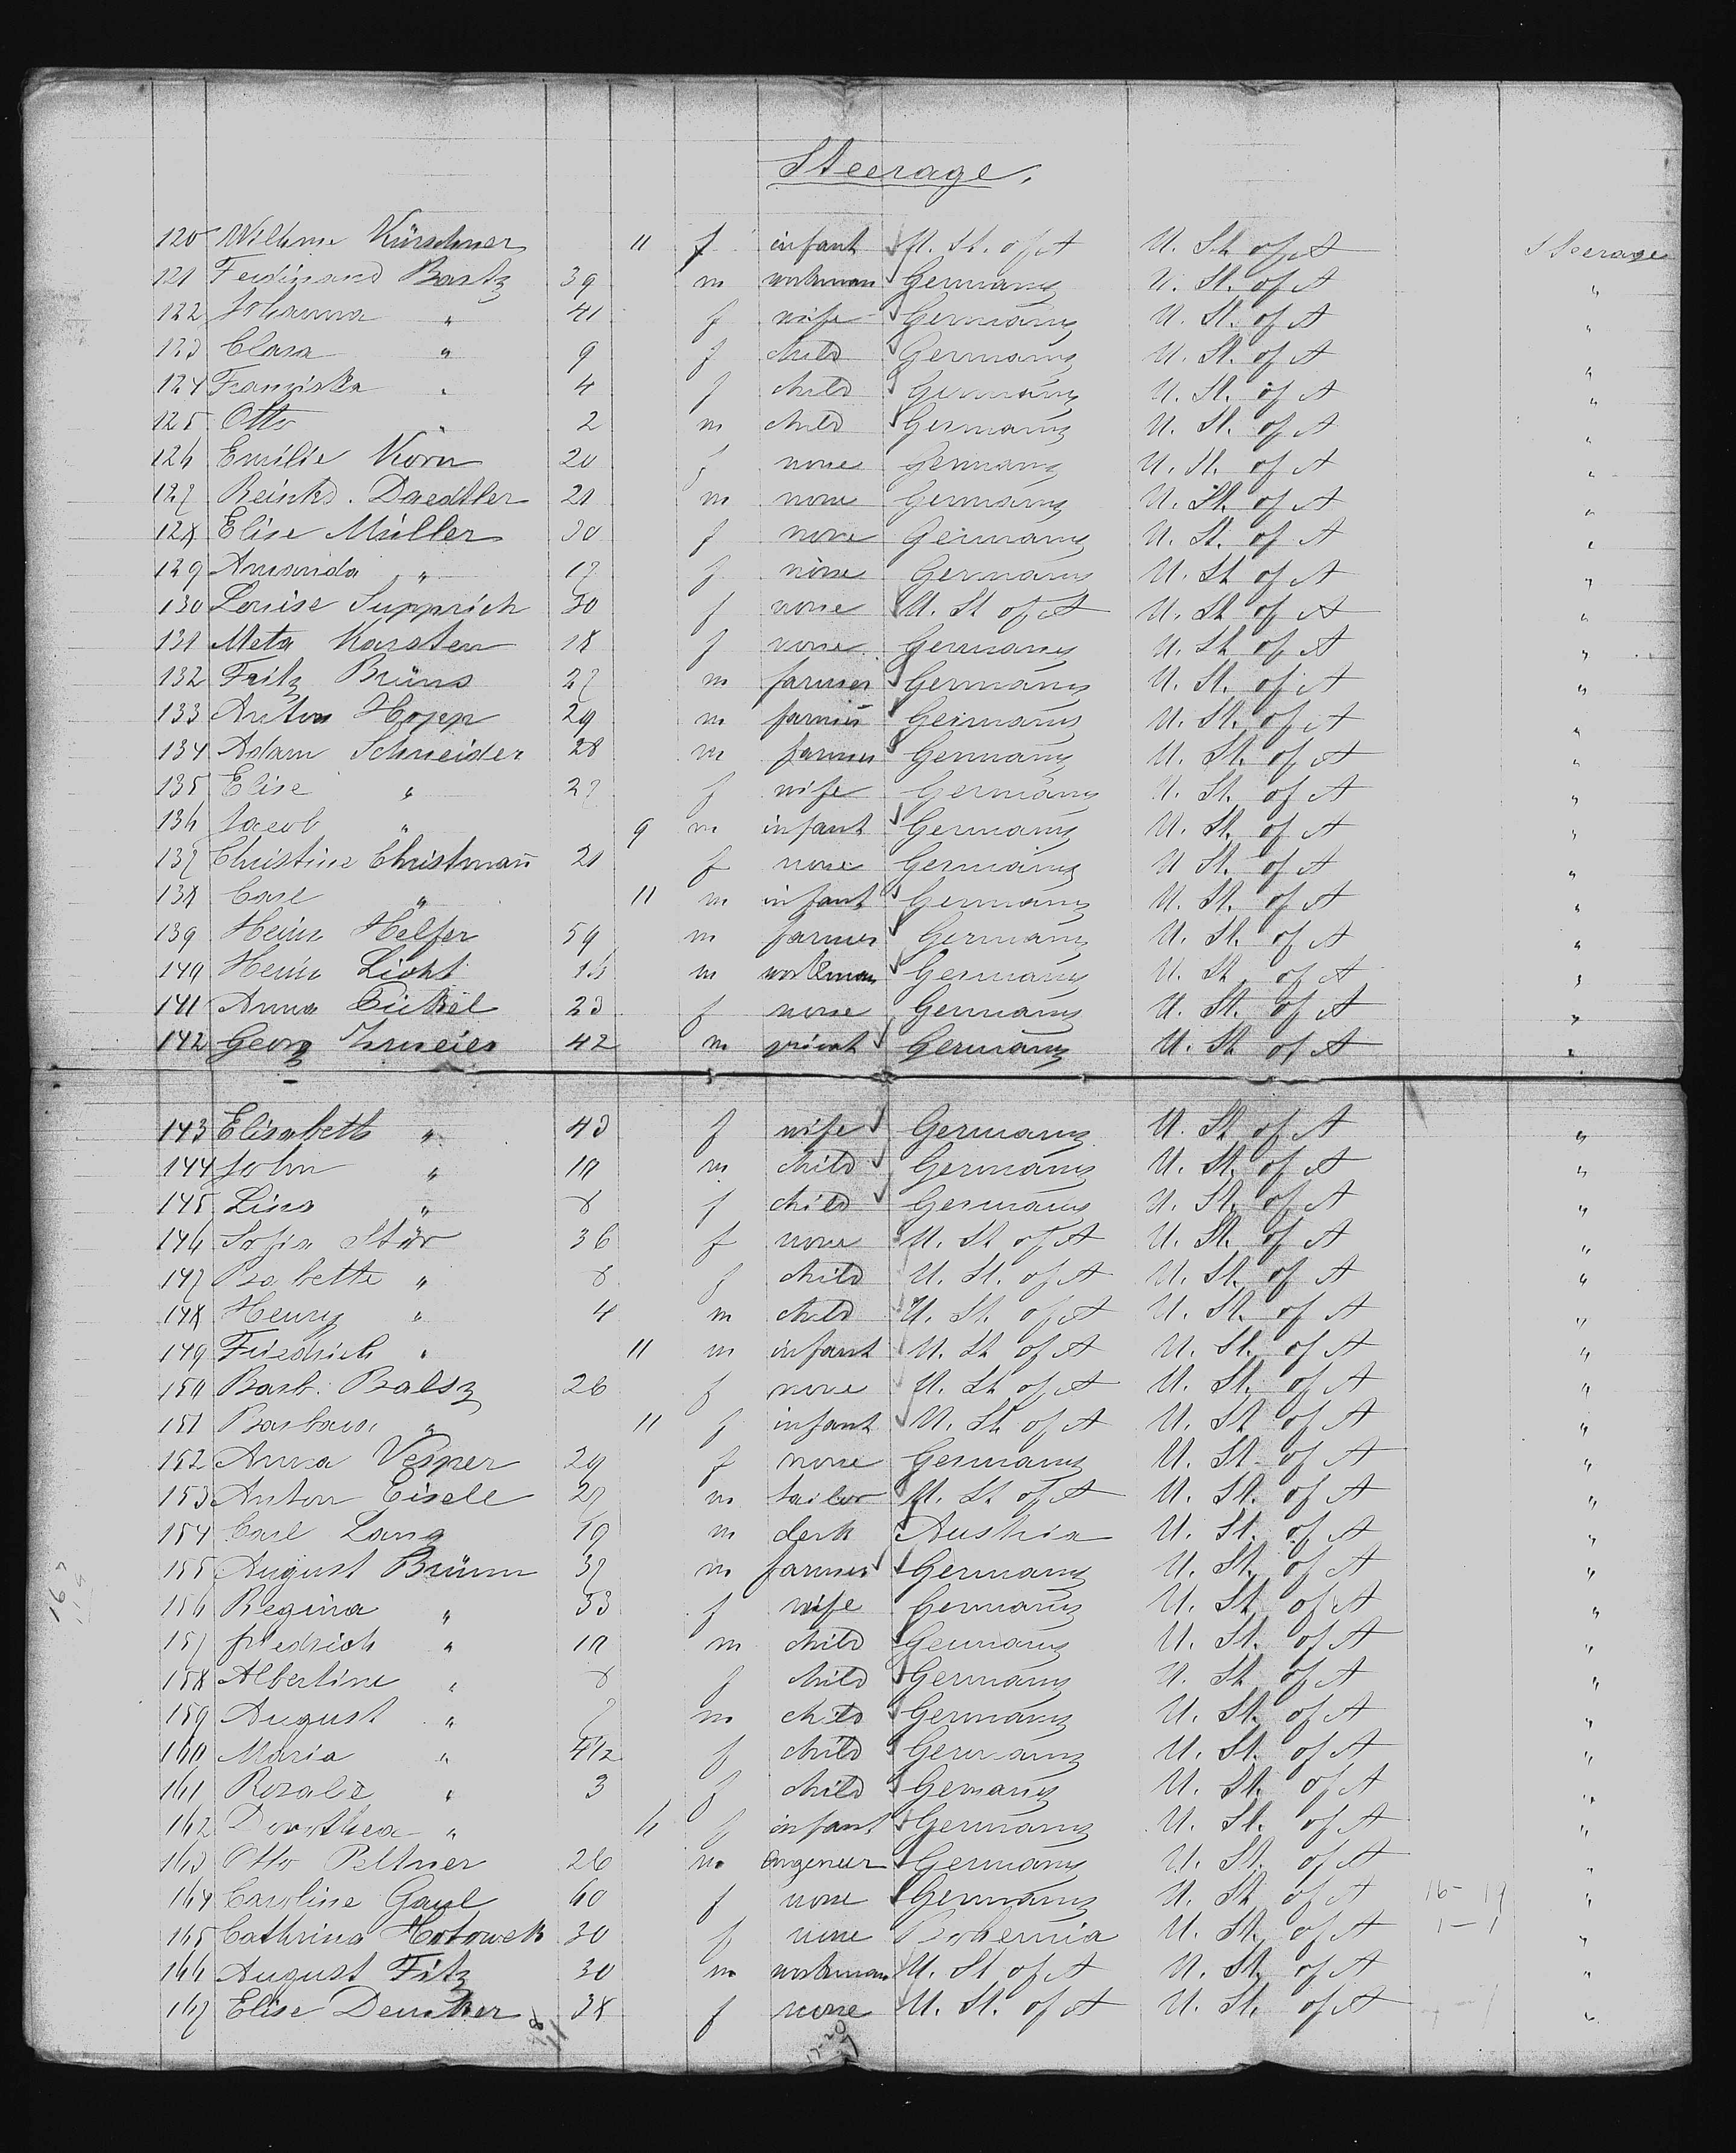 Steerage.
120 Wilhme Kürschner 11 f infant U. St. of A U. St. of A Steerage
121 Ferdinand Bartz 39 m workman Germany U. St. of A "
122 Johanna " 41 f wife Germany U. St. of A "
123 Clara " 9 f child Germany U. St. of A "
124 Franziska " 4 f child Germany U. St. of A "
125 Otto " 2 m child Germany U. St. of A "
126 Emilie Korn 20 f none Germany U. St. of A "
127 Reinhd. Daedtler 21 m none Germany U. St. of A "
128 Elise Müller 30 f none Germany U. St. of A "
129 Amanda " 17 f none Germany U. St. of A "
130 Louise Supprich 30 f none U. St of A U. St of A "
131 Meta Karsten 18 f none Germany U. St. of A "
132 Fritz Brüns 27 m farmer Germany U. St. of A "
133 Anton Hopp 29 m farmer Germany U. St. of A "
134 Adam Schneider 28 m farmer Germany U. St. of A "
135 Elise " 27 f wife Germany U. St. of A "
136 Jacob " 9 m infant Germany U. St. of A "
137 Christine Christmañ 21 f none Germany U St. of A "
138 Carl " 11 m infant Germany U. St. of A "
139 Heinr Helfer 59 m farmer Germany U. St. of A "
140 Heinr Licht m workman Germany U. St. of A "
141 Anna 23 f none Germany U. St. of A "
142 Georg 42 m privat Germany U. St of A "
143 Elisabeth " 43 f wife Germany U. St of A "
144 John " 10 m child Germany U. St. of A "
145 Lina " 8 f child Germany U. St. of A "
146 Sofia Stör 36 f none U. St of A U. St. of A "
147 Babette " 8 f child U. St. of A U. St. of A "
148 Henry " 4 m child U. St. of A U. St. of A "
149 Friedrich " 11 m infant U. St of A U. St. of A "
150 Barb. Balsz 26 f none U. St of A U. St. of A "
151 Barbara " 11 f infant U. St of A U. St of A "
152 Anna Vesper 29 f none Germany U. St. of A "
153 Anton Eisele 27 m tailor U. St. of A U. St. of A "
154 Carl Lang 19 m clerk Austria U. St. of A "
155 August Brümm 37 m farmer Germany U. St. of A "
156 Regina " 33 f wife Germany U. St. of A "
157 friedrich " 10 m child Germany U. St. of A "
158 Albertine " 8 f child Germany U. St. of A "
159 August " 7 m child Germany U. St. of A "
160 Maria " 4 1/2 f child Germany U. St. of A "
161 Rosalie " 3 f child Germany U. St. of A "
162 Dorothea " f infant Germany U. St. of A "
163 Otto Peltner 26 m engeneer Germany U. St. of A "
164 Caroline Gaul 60 f none Germany U. St. of A "
165 Cathrina Hotowek 30 f none Bohemia U. St. of A "
166 August Fitz 30 m workman U. St of A U. St. of A "
167 Elise Deucker 38 f none U. St. of A U. St. of A "